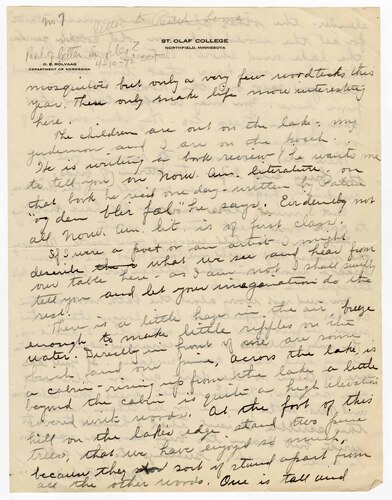 No 7
ST. OLAF COLLEGE
NORTHFIELD, MINNESOTA
Part of letter in file?
O. E. ROLVAAG
DEPARTMENT OF NORWEGIAN
mosquitoes but only a very few woodticks this
year. These only make life more interesting
here.
The children are out on the lake - my
and I are on the porch.
He is writing a book review (he wants me
to tell you) on Norw. Am. literature, on
that book he read one day - written by
"og den blev fal" he says. Evidently not
all Norw. Am. lit. is of first class.
If I were a poet or an artist I might
describe what we see and hear from
our table here - as I am not I shall simply
tell you and let your imagination do the
rest.
There is a little haze in the air, breeze
enough to make little ripples on the
water. Directly in front of me are some
birch and one pine, across the lake is
a cabin - rising up from the lake a little
beyond the cabin is quite a high elevation
covered with woods. At the foot of this
hill on the lake's edge stand two pine
trees, that we have enjoyed so much,
because they sort of stand apart from
all the other woods. One is tall and